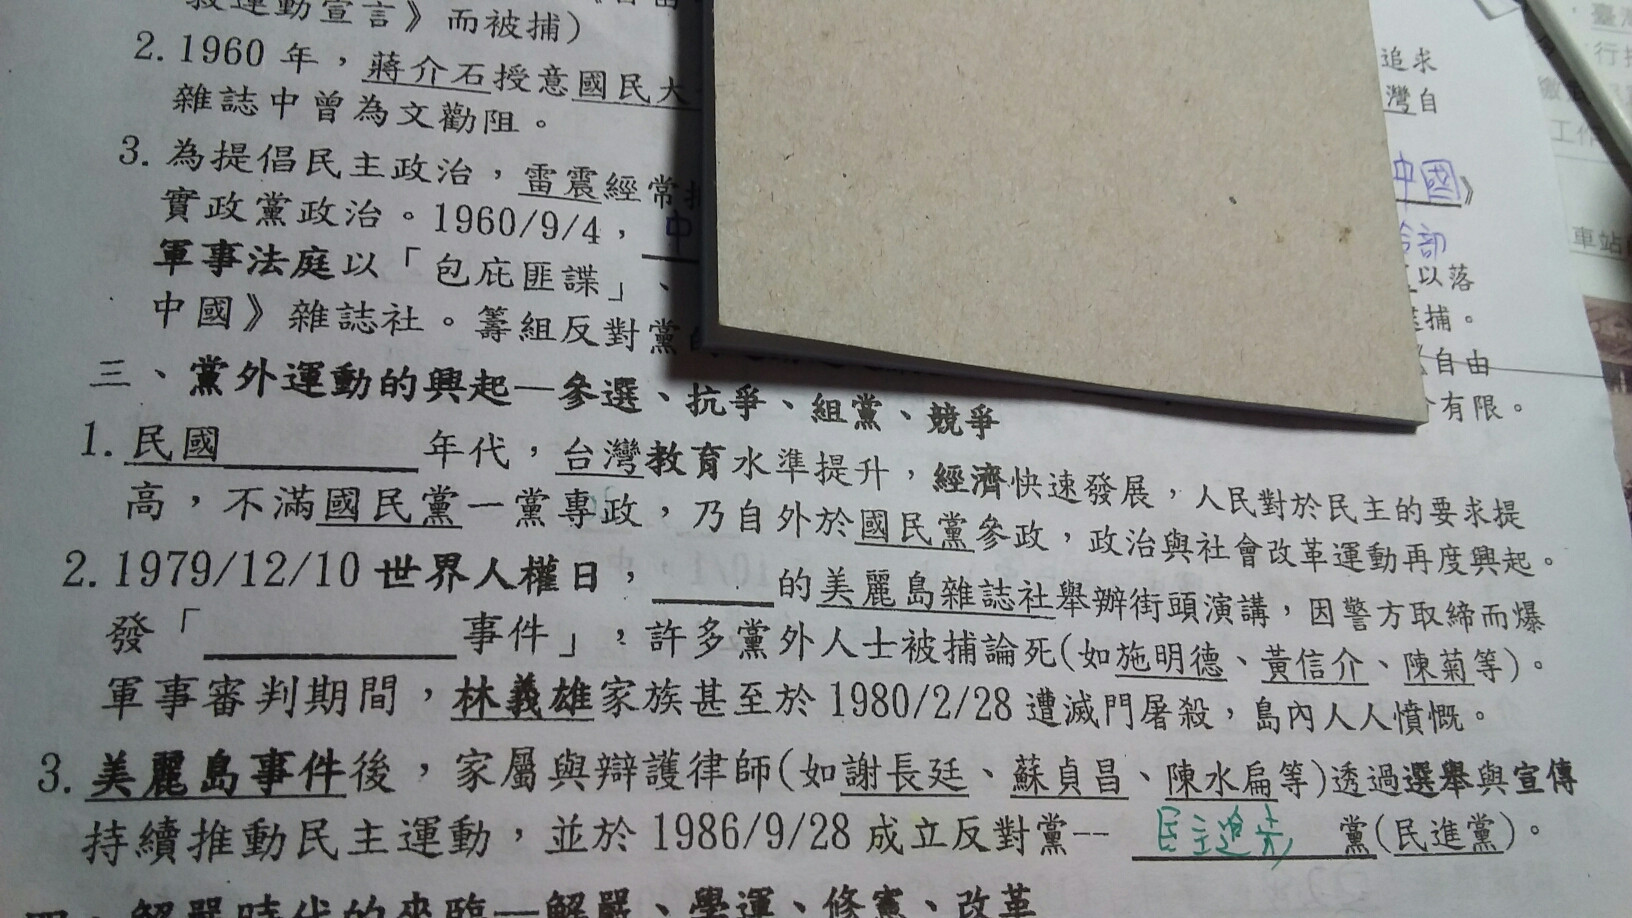 義運動宣言》而被捕)
2.1960 年，蔣介石授意國民大 追求
雜誌中曾為文勸阻。 灣自
3.為提倡民主政治，雷震經常 中國》
實政黨政治。1960/9/4，中
軍事法庭以「包庇匪諜」、 以落
中國》雜誌社。籌組反對黨 捕。
自由
有限。
三、黨外運動的興起—參選、抗爭、組黨、競爭
1.民國 年代，台灣教育水準提升，經濟快速發展，人民對於民主的要求提
高，不滿國民黨一黨專政，乃自外於國民黨參政，政治與社會改革運動再度興起。
2.1979/12/10 世界人權日， 的美麗島雜誌社舉辦街頭演講，因警方取締而爆
發「 事件」，許多黨外人士被捕論死(如施明德、黃信介、陳菊等)。
軍事審判期間，林義雄家族甚至於 1980/2/28 遭滅門屠殺，島內人人憤慨。
3.美麗島事件後，家屬與辯護律師(如謝長廷、蘇貞昌、陳水扁等)透過選舉與宣傳
持續推動民主運動，並於 1986/9/28 成立反對黨-- 民主進步 黨(民進黨)。
四、解嚴時代的來臨—解嚴、學運、修憲、改革
臺灣
行
工作
車站